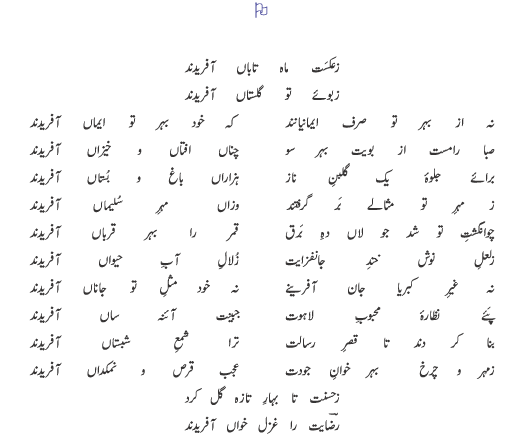 زعکست ماہ تاباں آفریدند
زبوئے تو گلستاں آفریدند
نہ از بہر تو صرف ایمانیانند کہ خود بہر تو ایماں آفریدند
صبا رامست از بویت بہر سو چناں افتاں و خیزاں آفریدند
برائے جلوۂ یک گلبنِ ناز ہزاراں باغ و بُستاں آفریدند
ز مہرِ تو مثالے بر گرفتند وزاں مہرِ سُلیماں آفریدند
چوانگشتِ تو شد جو لاں دہِ بَرق قمر را بہر قرباں آفریدند
زلعلِ نوش خندِ جانفزایت زُلالِ آبِ حیواں آفریدند
نہ غیرِ کبریا جان آفرینے نہ خود مثلِ تو جاناں آفریدند
پئے نظارۂ محبوبِ لاہوت جبینت آئنہ ساں آفریدند
بنا کر دند تا قصرِ رسالت ترا شمعِ شبستاں آفریدند
زمہر و چرخ بہر خوانِ جودت عجب قرص و نمکداں آفریدند
زحسنت تا بہارِ تازہ گل کرد
رضؔایت را غزل خواں آفریدند